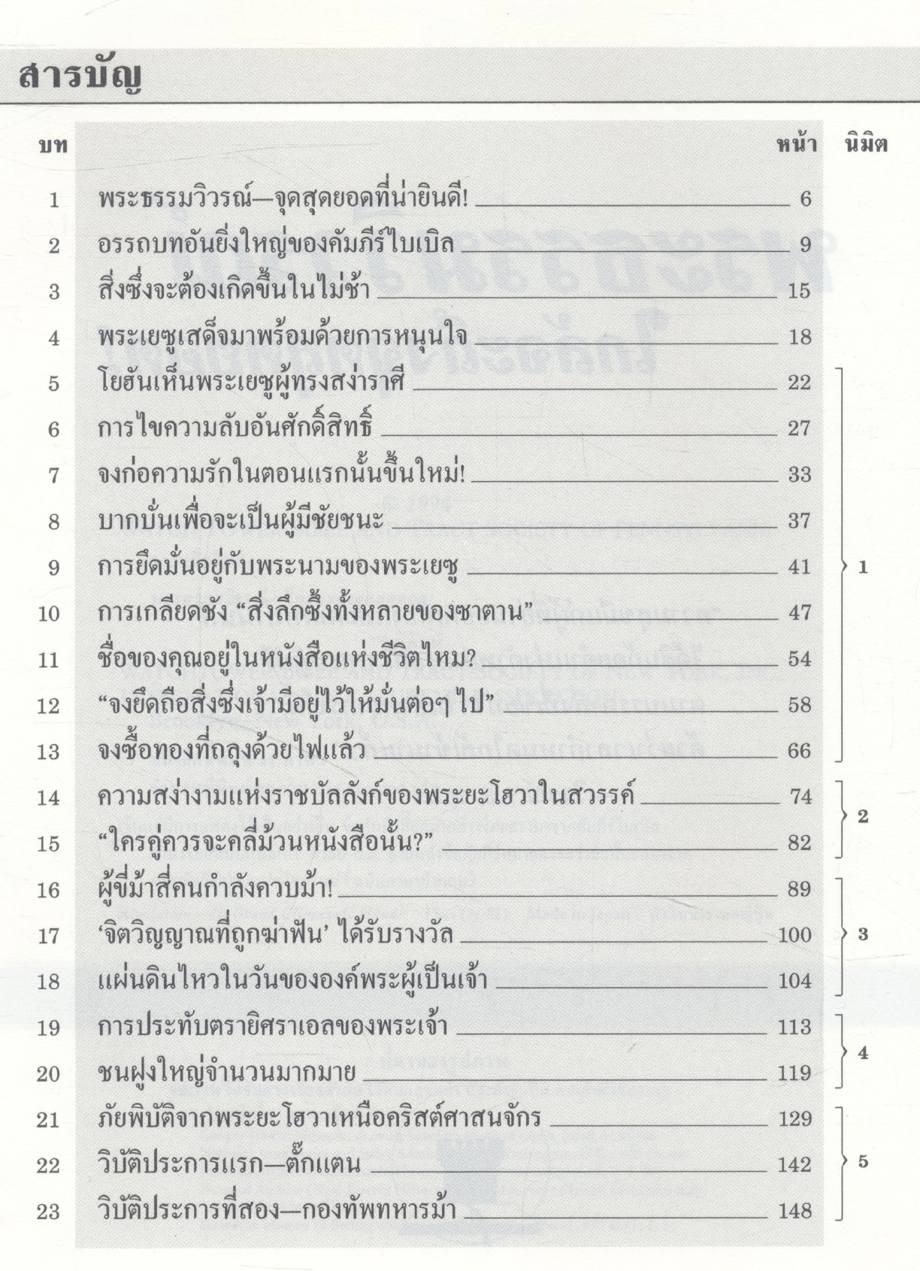 สารบัญ
บท หน้า นิมิต
1 พระธรรมวิวรณ์—จุดสุดยอดที่น่ายินดี! 6
2 อรรถบทอันยิ่งใหญ่ของคัมภีร์ไบเบิล 9
3 สิ่งซึ่งจะต้องเกิดขึ้นในไม่ช้า 15
4 พระเยซูเสด็จมาพร้อมด้วยการหนุนใจ 18
5 โยฮันเห็นพระเยซูผู้ทรงสง่าราศี 22
6 การไขความลับอันศักดิ์สิทธิ์ 27
7 จงก่อความรักในตอนแรกนั้นขึ้นใหม่! 33
8 บากบั่นเพื่อจะเป็นผู้มีชัยชนะ 37
9 การยึดมั่นอยู่กับพระนามของพระเยซู 41 1
10 การเกลียดชัง “สิ่งลึกซึ้งทั้งหลายของซาตาน” 47
11 ชื่อของคุณอยู่ในหนังสือแห่งชีวิตไหม? 54
12 “จงยึดถือสิ่งซึ่งเจ้ามีอยู่ไว้ให้มั่นต่อๆ ไป” 58
13 จงซื้อทองที่ถลุงด้วยไฟแล้ว 66
14 ความสง่างามแห่งราชบัลลังก์ของพระยะโฮวาในสวรรค์ 74
2
15 “ใครคู่ควรจะคลี่ม้วนหนังสือนั้น?” 82
16 ผู้ขี่ม้าสี่คนกำลังควบม้า! 89
17 ‘จิตวิญญาณที่ถูกฆ่าฟัน’ ได้รับรางวัล 100 3
18 แผ่นดินไหวในวันขององค์พระผู้เป็นเจ้า 104
19 การประทับตรายิศราเอลของพระเจ้า 113
4
20 ชนฝูงใหญ่จำนวนมากมาย 119
21 ภัยพิบัติจากพระยะโฮวาเหนือคริสต์ศาสนจักร 129
22 วิบัติประการแรก—ตั๊กแตน 142 5
23 วิบัติประการที่สอง—กองทัพทหารม้า 148